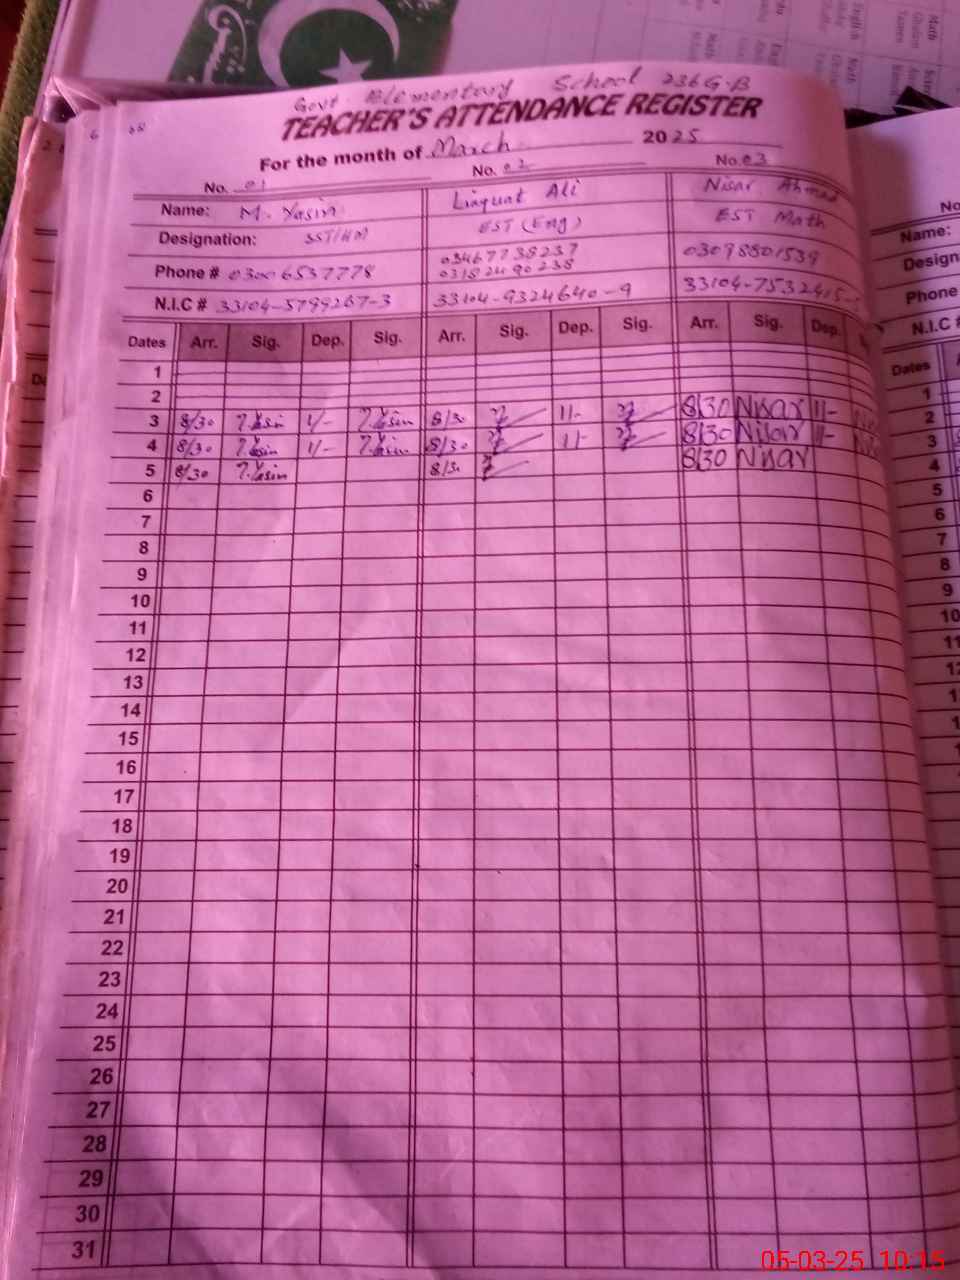 Govt Elementary School 236 G.B
TEACHER'S ATTENDANCE REGISTER
For the month of March 2025
No. 01 No. 02 No. 03
Name: M. Yasin Liaquat Ali Nisar Ahmad
Designation: SST/HM EST (Eng) EST Math
Phone # 03006537778 03467738237 03098801539
03182490238
N.I.C # 33104-5799267-3 33104-9324640-9 33104-7532415-
Dates Arr. Sig. Dep. Sig. Arr. Sig. Dep. Sig. Arr. Sig. Dep.
1
2
3 8/30 Yasin 1/- Yasin 8/30 11- 8/30 Nisar 11-
4 8/30 Yasin 1/- Yasin 8/30 11- 8/30 Nisar 11-
5 8/30 Yasin 8/30 8/30 Nisar
6
7
8
9
10
11
12
13
14
15
16
17
18
19
20
21
22
23
24
25
26
27
28
29
30
31
No
Name:
Design
Phone
N.I.C #
Dates
1
2
3
4
5
6
7
8
9
10
11
12
05-03-25 10:15